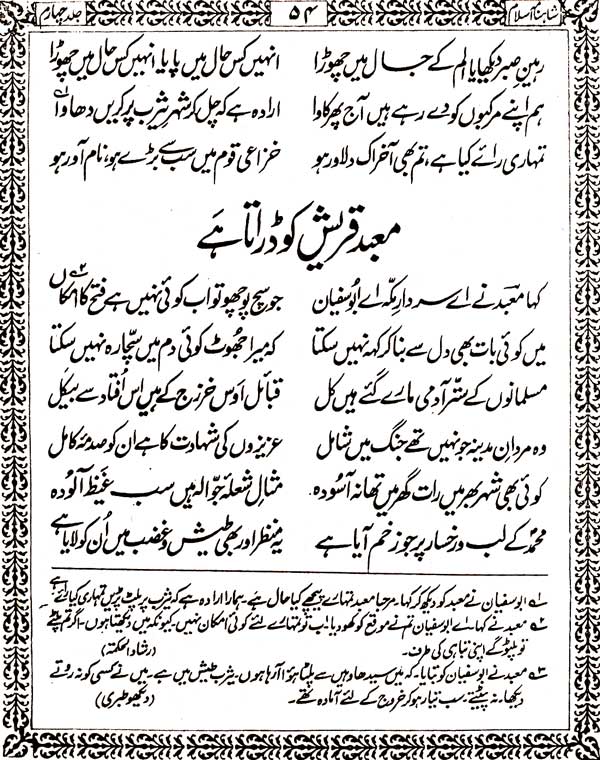 شاہنامہ اسلام ۵۴ جلد چہارم
رہینِ صبر دکھیا یا الم کے جال میں چھوڑا انہیں کس حال میں پایا انہیں کس حال میں چھوڑا
ہم اپنے مرکبوں کو دے رہے ہیں آج پھر کاوا ارادہ ہے کہ چل کر شہرِ یثرب پر کریں دھاوا
تمہاری رائے کیا ہے، تم بھی آخر اک دلاور ہو خزاعی قوم میں سب سے بڑے ہو، نام آور ہو
معبد قریش کو ڈراتا ہے
کہا معبد نے اے سردارِ مکّہ اے ابوسفیان جو سچ پوچھو تو اب کوئی نہیں ہے فتح کا امکاں ۲
میں کوئی بات بھی دل سے بنا کر کہہ نہیں سکتا کہ میرا جھوٹ کوئی دم میں سچّا رہ نہیں سکتا
مسلمانوں کے ستّر آدمی مارے گئے ہیں کل قبائل اَوس خزرج کے ہیں اس اُفتاد سے بیکل
وہ مردانِ مدینہ جو نہیں تھے جنگ میں شامل عزیزوں کی شہادت کا ہے ان کو صدمۂ کامل
کوئی بھی شہر بھر میں رات گھر میں تھا نہ آسُودہ مثالِ شعلۂ جوّالہ ہیں سب غیظ آلُودہ
محمدؐ کے لب و رخسار پر جو زخم آیا ہے یہ منظر اور بھی طیش و غضب میں اُن کو لایا ہے
۱؎ ابوسفیان نے معبد کو دیکھ کر کہا۔ مرحبا معبد تمہارے پیچھے کیا حال ہے۔ ہمارا ارادہ ہے کہ یثرب پر پلٹ پڑیں تمہاری کیا رائے ہے
۲؎ معبد نے کہا۔ اے ابوسفیان تم نے موقع کو کھو دیا۔ اب تو تمہارے لئے کوئی امکان نہیں۔ کیونکہ میں دیکھتا ہوں۔ اگر تم پلٹے
تو پلٹو گے اپنی تباہی کی طرف۔ (رشاد الحکمۃ)
۳؎ معبد نے ابوسفیان کو بتایا۔ کہ میں سیدھا وہیں سے پلٹتا ہوا آ رہا ہوں۔ یثرب طیش میں ہے۔ میں نے کسی کو نہ روتے
دیکھا۔ نہ پیٹتے۔ سب تیار ہو کر خروج کے لئے آمادہ تھے۔ (دیکھو طبری)